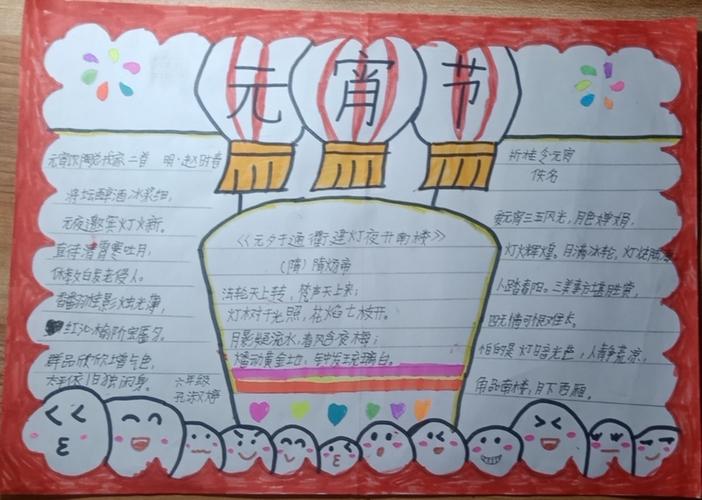 元宵节
元宵饮陶总戎家二首 明·赵时春
将坛醇酒冰浆细,
元夜邀宾灯火新。
直待清霄寒吐月,
休教白发老侵人。
香翻桂影烛光薄,
红沁榆阶宝靥匀。
群品欣欣增气色,
太平依旧独闲身。
六年级
《元夕于通衢建灯夜升南楼》
(隋)隋炀帝
法轮天上转,梵声天上来;
灯树千光照,花焰七枝开。
月影疑流水,春风含夜梅;
燔动黄金地,钟发琉璃台。
折桂令元宵
佚名
爱元宵三五风光,月色婵娟,
灯火辉煌。月满冰轮,灯烧
人踏春阳。三美事方堪胜赏,
四无情可恨难长。
怕的是灯暗光色,人静荒凉,
角品南楼,月下西厢。